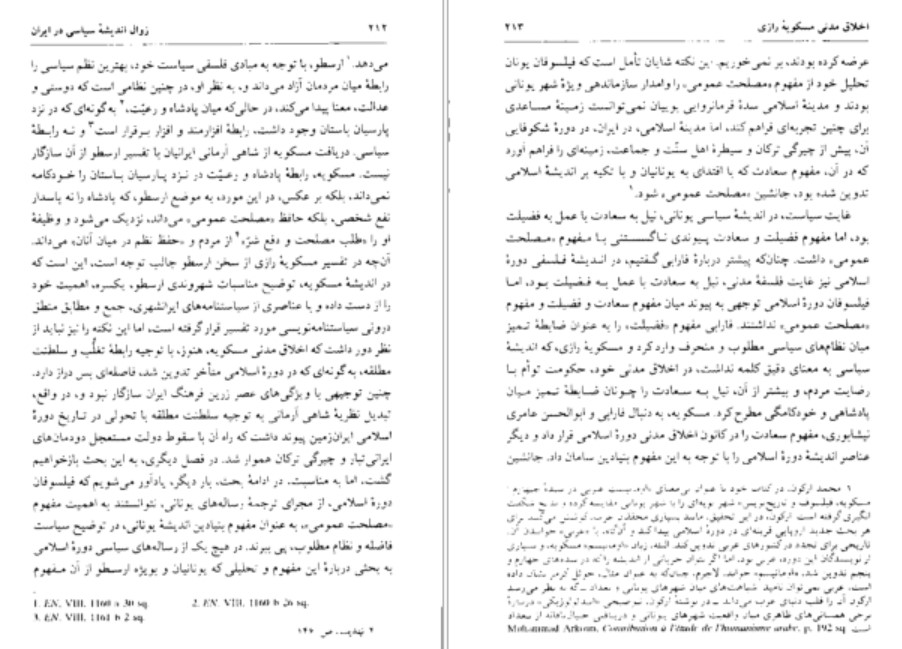 ۲۱۲ زوال اندیشهٔ سیاسی در ایران
می‌دهد.۱ ارسطو، با توجه به مبادی فلسفی سیاست خود، بهترین نظم سیاسی را
رابطهٔ میان مردمان آزاد می‌داند و، به نظر او، در چنین نظامی است که دوستی و
عدالت، معنا پیدا می‌کند، در حالی‌که میان پادشاه و رعیّت،۲ به‌گونه‌ای که در نزد
پارسیان باستان وجود داشت، رابطهٔ افزارمند و افزار برقرار است۳ و نه رابطهٔ
سیاسی. دریافت مسکویه از شاهی آرمانی ایرانیان با تفسیر ارسطو از آن سازگار
نیست. مسکویه، رابطهٔ پادشاه و رعیّت در نزد پارسیان باستان را خودکامه
نمی‌داند، بلکه بر عکس، در این مورد، به موضع ارسطو، که پادشاه را نه پاسدار
نفع شخصی، بلکه حافظ «مصلحت عمومی» می‌داند، نزدیک می‌شود و وظیفهٔ
او را «طلب مصلحت و دفع شرّ»۴ از مردم و «حفظ نظم در میان آنان» می‌داند.
آن‌چه در تفسیر مسکویهٔ رازی از سخن ارسطو جالب توجه است، این است که
در اندیشهٔ مسکویه، توضیح مناسبات شهروندی ارسطو، یکسره، اهمیت خود
را از دست داده و با عناصری از سیاستنامه‌های ایرانشهری، جمع و مطابق منطق
درونی سیاستنامه‌نویسی مورد تفسیر قرار گرفته است، اما این نکته را نیز نباید از
نظر دور داشت که اخلاق مدنی مسکویه، هنوز، با توجیه رابطهٔ تغلّب و سلطنت
مطلقه، به‌گونه‌ای که در دورهٔ اسلامی متأخر تدوین شد، فاصله‌ای بس دراز دارد.
چنین توجیهی با ویژگی‌های عصر زرین فرهنگ ایران سازگار نبود و، در واقع،
تبدیل نظریهٔ شاهی آرمانی به توجیه سلطنت مطلقه با تحولی در تاریخ دورهٔ
اسلامی ایران‌زمین پیوند داشت که راه آن با سقوط دولت مستعجل دودمان‌های
ایرانی‌تبار و چیرگی ترکان هموار شد. در فصل دیگری، به این بحث بازخواهیم
گشت، اما به مناسبت، در ادامهٔ بحث، بار دیگر، یادآور می‌شویم که فیلسوفان
دورهٔ اسلامی، از مجرای ترجمهٔ رساله‌های یونانی، نتوانستند به اهمیت مفهوم
«مصلحت عمومی»، به عنوان مفهوم بنیادین اندیشهٔ یونانی، در توضیح سیاست
فاضله و نظام مطلوب، پی ببرند. در هیچ یک از رساله‌های سیاسی دورهٔ اسلامی
به بحثی دربارهٔ این مفهوم و تحلیلی که یونانیان و بویژه ارسطو از آن مفهوم
1. EN. VIII. 1160 a 30 sq. 2. EN. VIII. 1160 b 26 sq.
3. EN. VIII. 1161 b 2 sq.
۴. تهذیب، ص ۱۴۶
اخلاق مدنی مسکویهٔ رازی ۲۱۳
عرضه کرده بودند، بر نمی‌خوریم. این نکته شایان تأمل است که فیلسوفان یونان
تحلیل خود از مفهوم «مصلحت عمومی» را وامدار سازماندهی ویژهٔ شهر یونانی
بودند و مدینهٔ اسلامی سدهٔ فرمانروایی بوییان نمی‌توانست زمینهٔ مساعدی
برای چنین تجربه‌ای فراهم کند، اما مدینهٔ اسلامی، در ایران، در دورهٔ شکوفایی
آن، پیش از چیرگی ترکان و سیطرهٔ اهل سنّت و جماعت، زمینه‌ای را فراهم آورد
که در آن، مفهوم سعادت که با اقتدای به یونانیان و با تکیه بر اندیشهٔ اسلامی
تدوین شده بود، جانشین «مصلحت عمومی» شود.۱
غایت سیاست، در اندیشهٔ سیاسی یونانی، نیل به سعادت با عمل به فضیلت
بود، اما مفهوم فضیلت و سعادت پیوندی ناگسستنی با مفهوم «مصلحت
عمومی» داشت. چنان‌که پیشتر دربارهٔ فارابی گفتیم، در اندیشهٔ فلسفی دورهٔ
اسلامی نیز غایت فلسفهٔ مدنی، نیل به سعادت با عمل به فضیلت بود، اما
فیلسوفان دورهٔ اسلامی توجهی به پیوند میان مفهوم سعادت و فضیلت و مفهوم
«مصلحت عمومی» نداشتند. فارابی مفهوم «فضیلت» را به عنوان ضابطهٔ تمیز
میان نظام‌های سیاسی مطلوب و منحرف وارد کرد و مسکویهٔ رازی، که اندیشهٔ
سیاسی به معنای دقیق کلمه نداشت، در اخلاق مدنی خود، حکومت توأم با
رضایت مردم، و بیشتر از آن، نیل به سعادت را چونان ضابطهٔ تمیز میان
پادشاهی و خودکامگی مطرح کرد. مسکویه، به دنبال فارابی و ابوالحسن عامری
نیشابوری، مفهوم سعادت را در کانون اخلاق مدنی دورهٔ اسلامی قرار داد و دیگر
عناصر اندیشهٔ دورهٔ اسلامی را با توجه به این مفهوم بنیادین سامان داد. جانشین
۱. محمد ارکون، در کتاب خود با عنوان
مسکویه، فیلسوف و تاریخ‌نویس
هر بحث جدید اروپایی قرینه‌ای در دورهٔ اسلامی پیدا کند و آن‌گاه، با
از نویسندگان این دوره، عربی بود، اما اگر بتوان جریانی از اندیشه را که در سده‌های چهارم و
پنجم تدوین شد، «اومانیسم» خواند، لاجرم، چنان‌که به عنوان مثال، جوئل کرمر نشان داده
است، عربی نمی‌توان نامید. شباهت‌های میان شهرهای یونانی و بغداد ـ که به نظر می‌رسد
ارکون آن را قلب دنیای عرب می‌داند ـ در نوشتهٔ ارکون، توضیحی «ایدئولوژیکی» دربارهٔ
برخی همسانی‌های ظاهری میان واقعیت شهرهای یونانی و دریافتی خیال‌بافانه از بغداد
است. Mohammad Arkoun, Contribution à l'étude de l'humanisme arabe, p. 192 sq